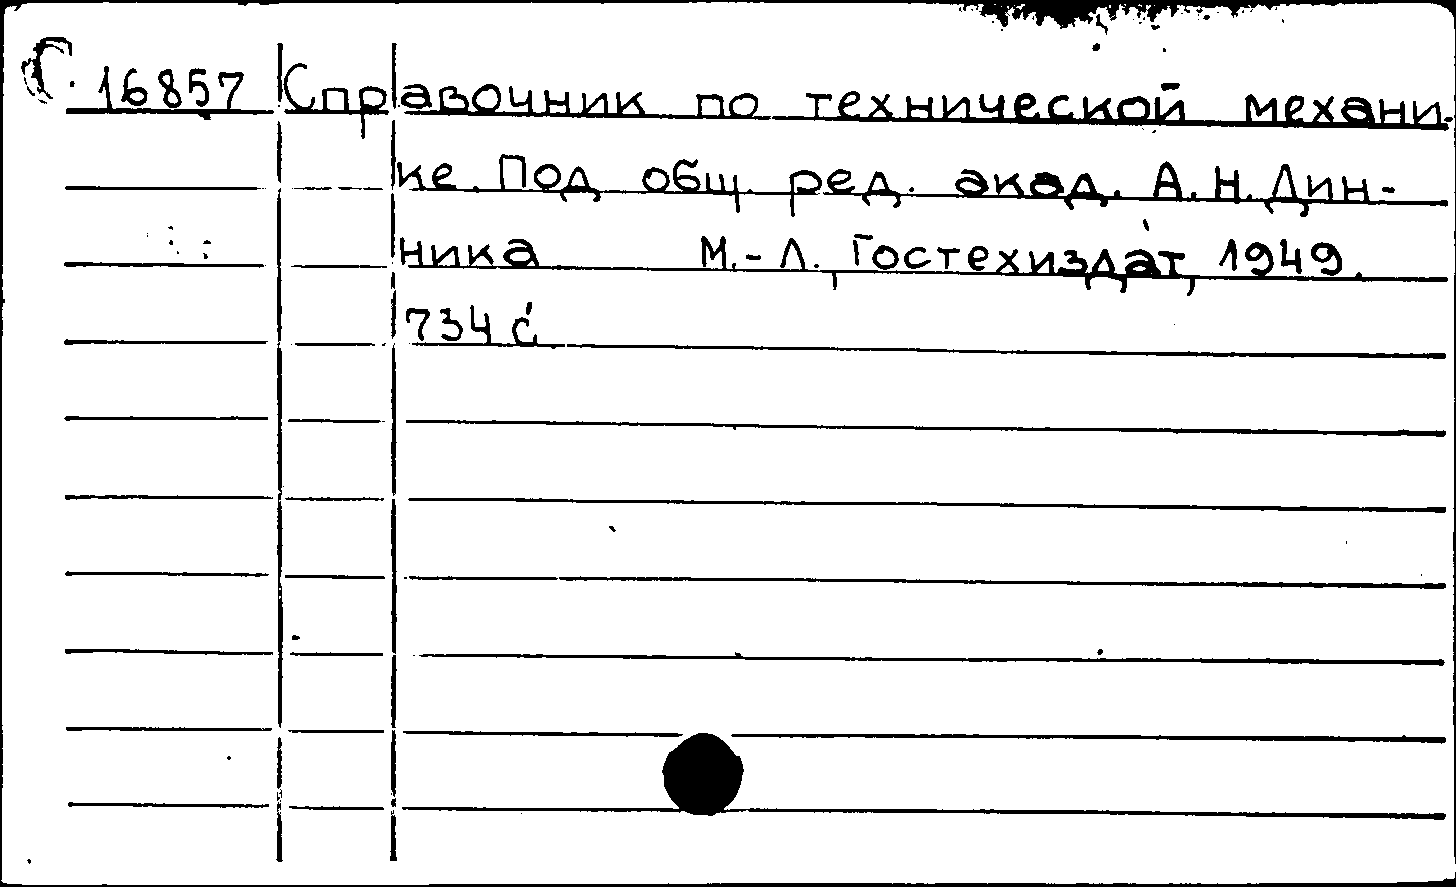 С. 16857 Справочник по технической механи-
ке. Под общ. ред. акад. А.Н. Дин-
ника М.-Л., Гостехиздат, 1949.
734 с.